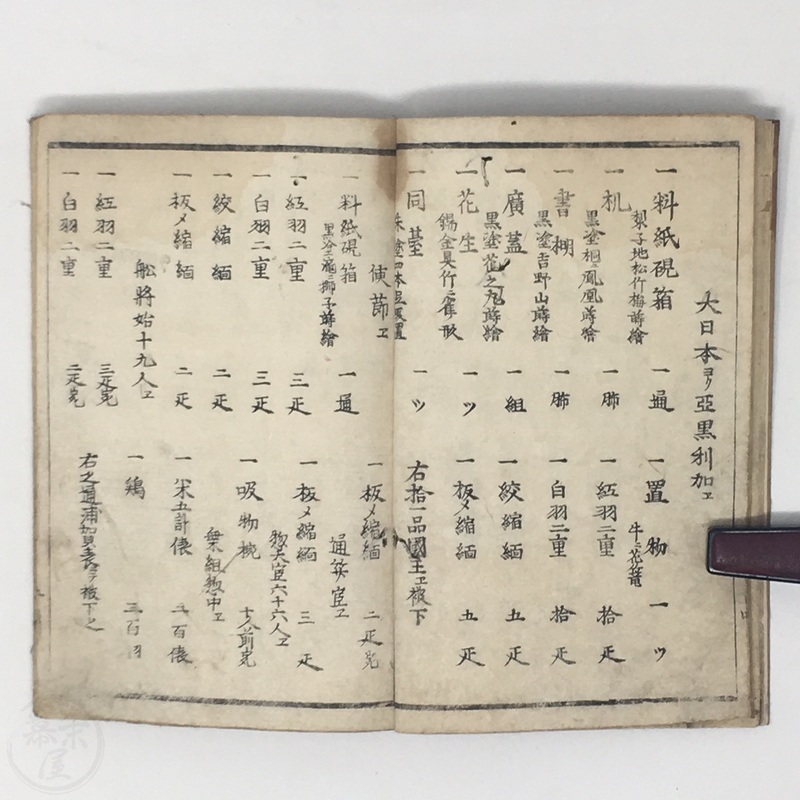 大日本ヨリ亞黒利加ヱ
一料紙硯箱 一通
梨子地松竹梅蒔繪
一机 一脚
黒塗桐ニ鳳凰蒔繪
一書棚 一脚
黒塗吉野山蒔繪
一廣蓋 一組
黒塗花之丸蒔繪
一花生 一ツ
錫金具竹ニ雀形
一同基 一ツ
一置物 一ツ
牛ニ花篭
一紅羽二重 拾疋
一白羽二重 拾疋
一絞縮緬 五疋
一板〆縮緬 五疋
右拾一品國王ヱ被下
使節ヱ
一料紙硯箱 一通
獅子蒔繪
一紅羽二重 三疋
一白羽二重 三疋
一絞縮緬 二疋
一板〆縮緬 二疋
舩將始十九人ヱ
一紅羽二重 三疋宛
一白羽二重 二疋宛
一板〆縮緬 二疋宛
通弁官ヱ
一板〆縮緬 三疋
惣父官六十六人ヱ
一吸物椀 十人前宛
乗組惣中ヱ
一米五計俵 二百俵
一鶏 三百羽
右之通浦賀表ニテ被下之